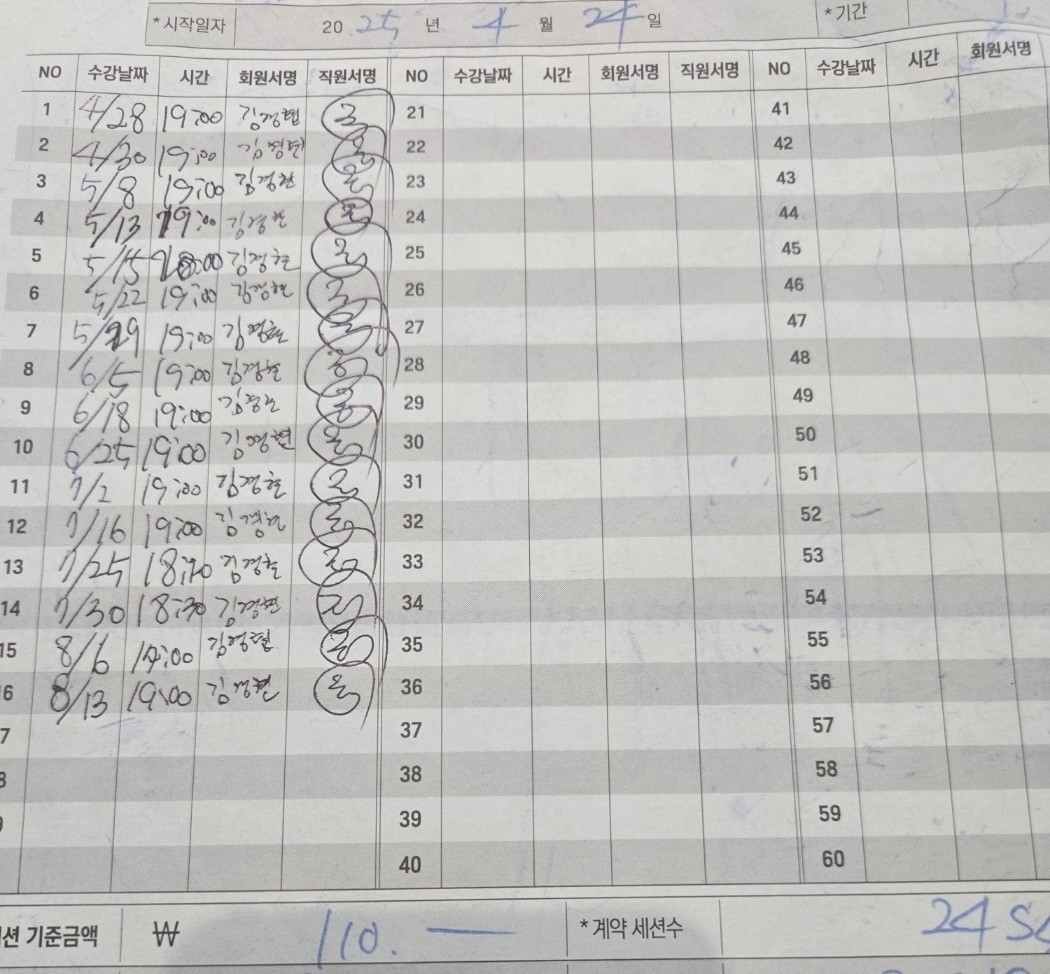 *시작일자 20 25 년 4 월 24 일 *기간
NO 수강날짜 시간 회원서명 직원서명 NO 수강날짜 시간 회원서명 직원서명 NO 수강날짜 시간 회원서명
1 4/28 19:00 김경현 21 41
2 4/30 19:00 김경현 22 42
3 5/8 19:00 김경현 23 43
4 5/13 19:00 김경현 24 44
5 5/15 김경현 25 45
6 5/22 19:00 김경현 26 46
7 5/29 19:00 김경현 27 47
8 6/5 19:00 김경현 28 48
9 6/18 19:00 김경현 29 49
10 6/25 19:00 김경현 30 50
11 7/2 19:00 김경현 31 51
12 7/16 19:00 김경현 32 52
13 7/25 김경현 33 53
14 7/30 18:30 김경현 34 54
15 8/6 김경현 35 55
6 8/13 19:00 김경현 36 56
7 37 57
8 38 58
39 59
40 60
션 기준금액 ₩ 110. — *계약 세션수 24